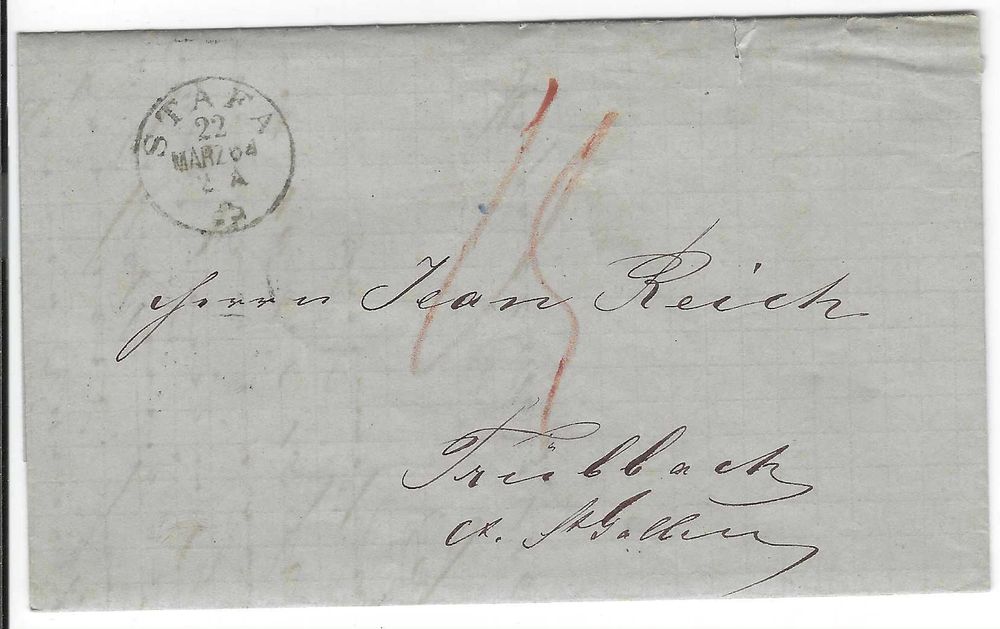 STAFA
22
MARZ 64
2 A
15
Herrn Jean Reich
Trübbach
Ct. St Gallen